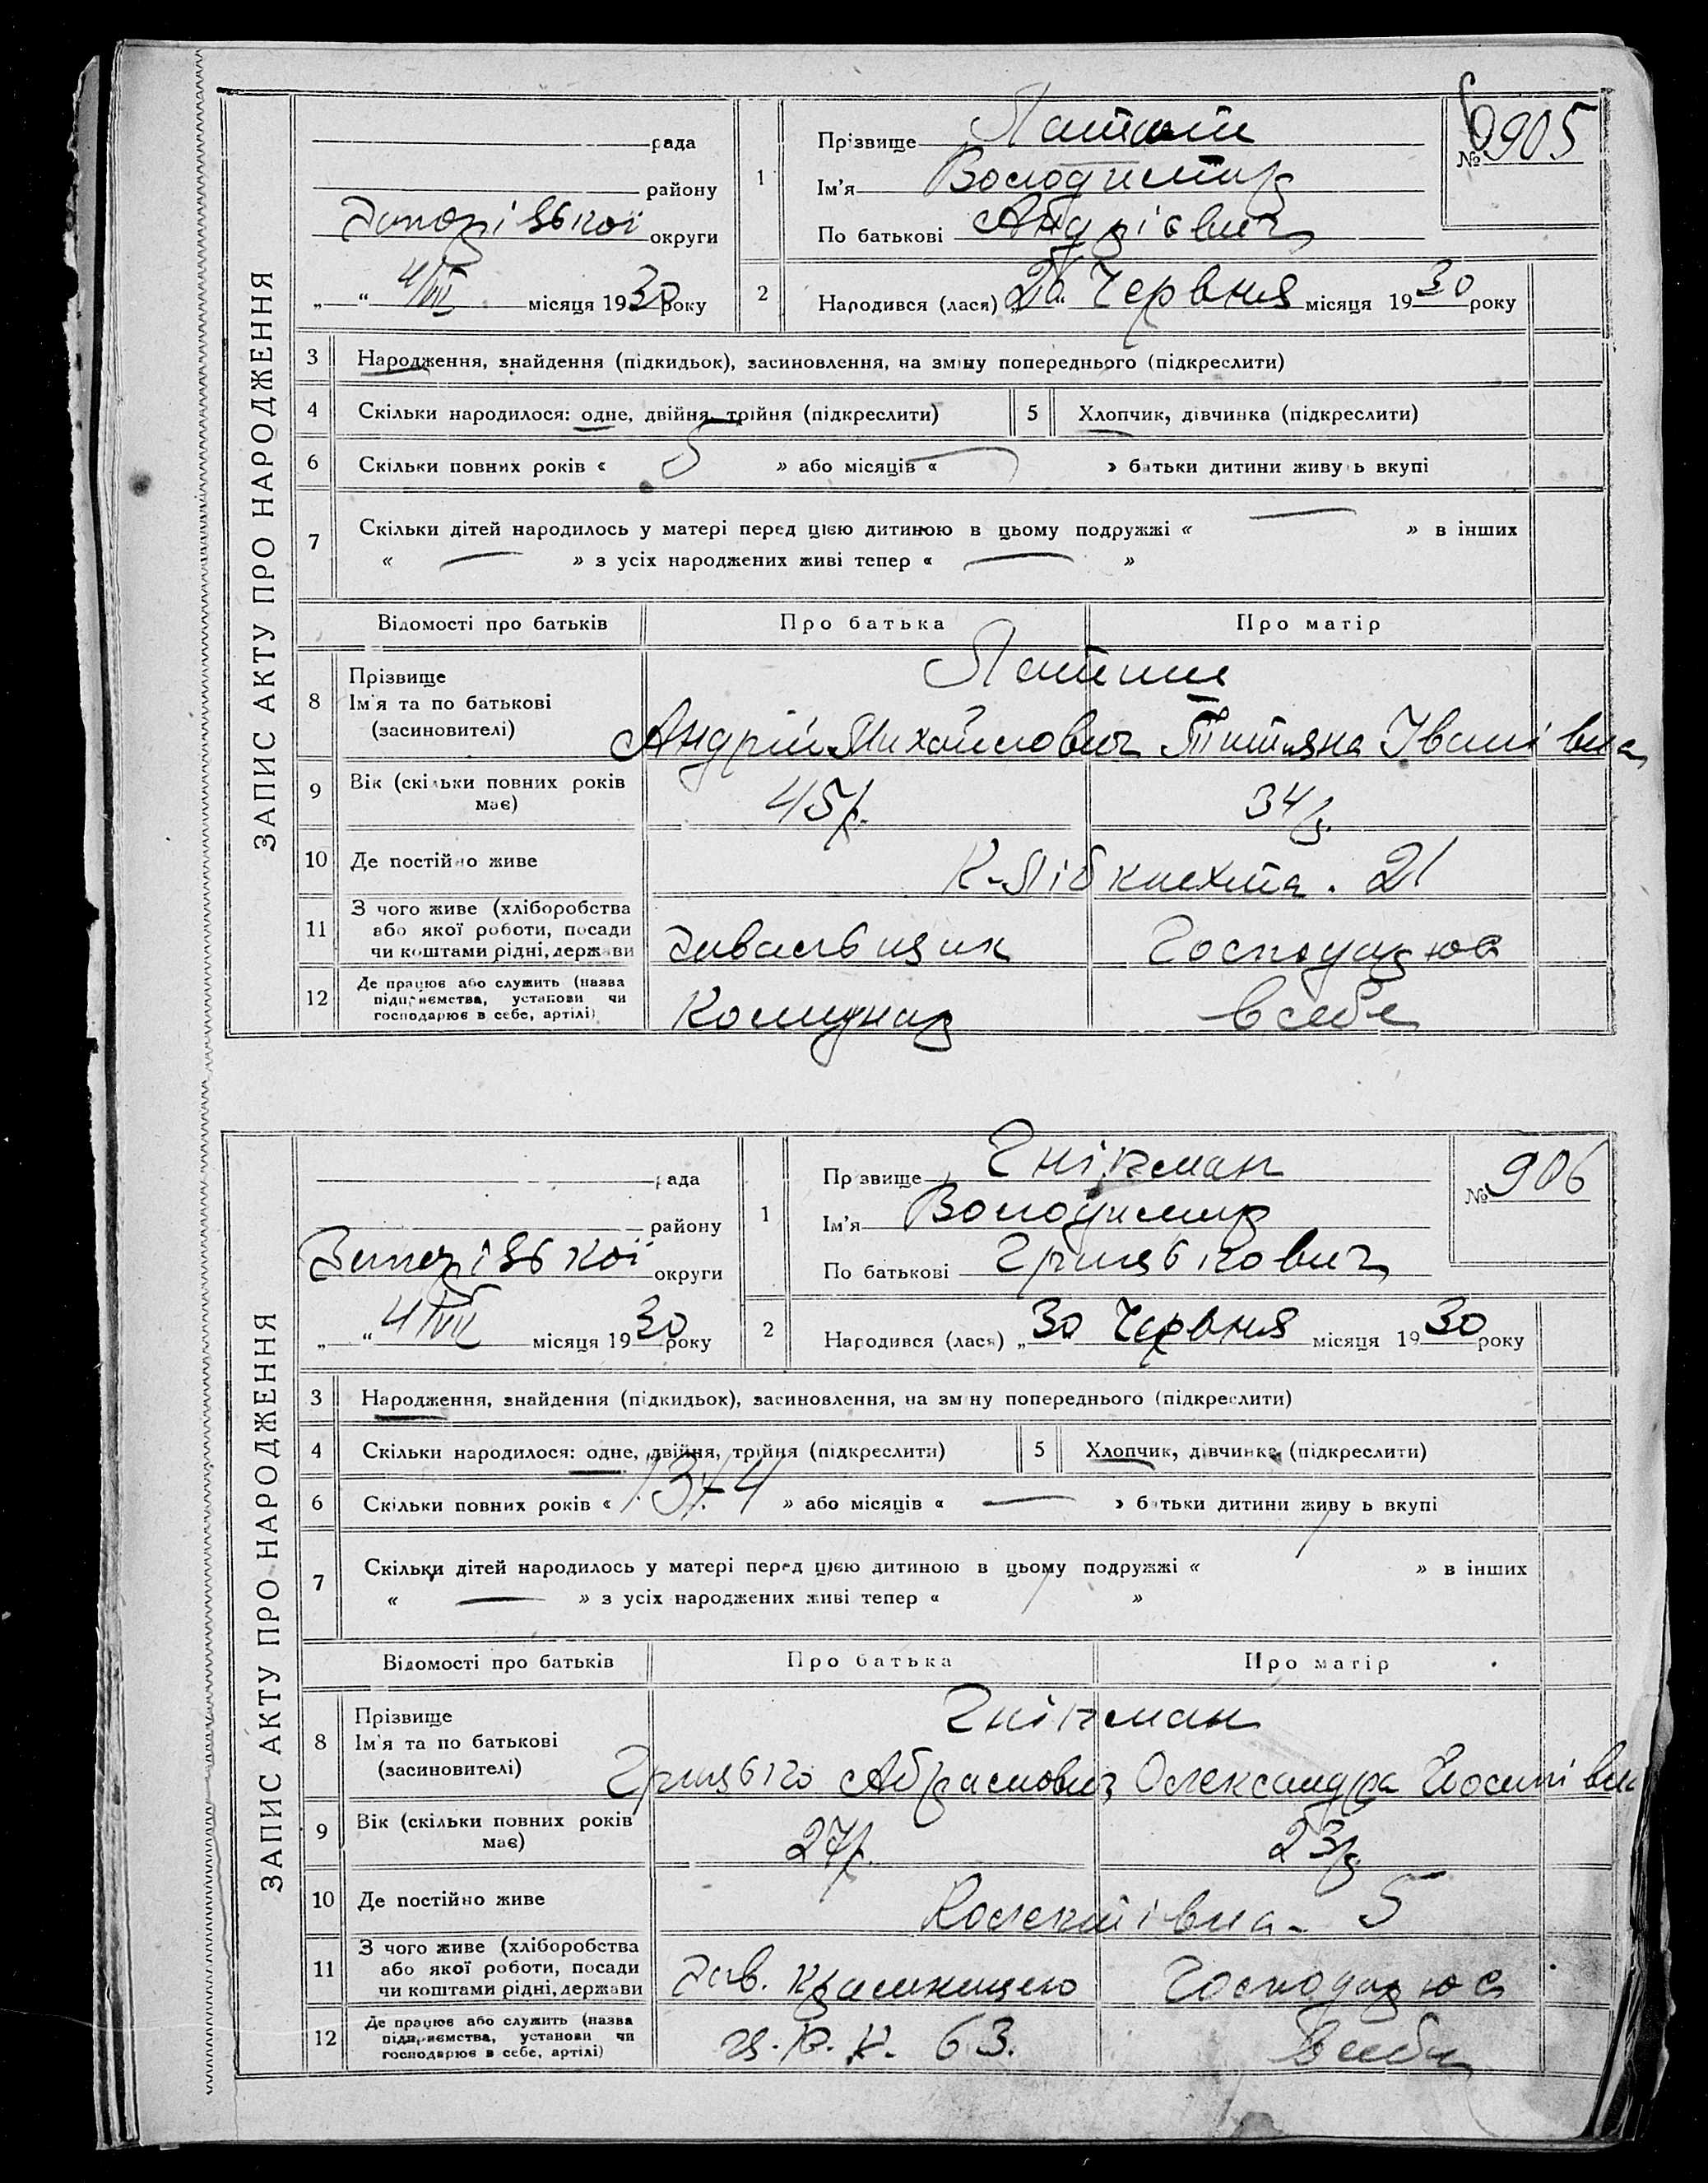 ЗАПИС АКТУ ПРО НАРОДЖЕННЯ
рада
району
Запорізької округи
„ “ 4/VII місяця 1930 року
1
Прізвище
Ім'я Володимир
По батькові Андрієвич
№ 905
2
Народився (лася) „26“ Червня місяця 1930 року
3 Народження, знайдення (підкидьок), засиновлення, на зміну попереднього (підкреслити)
4 Скільки народилося: одне, двійня, трійня (підкреслити)
5 Хлопчик, дівчинка (підкреслити)
6 Скільки повних років « 5 » або місяців « — » батьки дитини живуть вкупі
7 Скільки дітей народилось у матері перед цією дитиною в цьому подружжі « — » в інших
« — » з усіх народжених живі тепер « — »
Відомості про батьків
Про батька
Про матір
8 Прізвище
Ім'я та по батькові
(засиновителі)
Андрій Михайлович Титяна Іванівна
9 Вік (скільки повних років
має)
45 р.
34 р.
10 Де постійно живе
К-Лібкнехта. 21
11 З чого живе (хліборобства
або якої роботи, посади
чи коштами рідні, держави
Господарює
12 Де працює або служить (назва
підприємства, установи чи
господарює в себе, артілі)
Комунар
в себе
ЗАПИС АКТУ ПРО НАРОДЖЕННЯ
рада
району
Запорізької округи
„ “ 4/VII місяця 1930 року
1
Прізвище Гнікман
Ім'я Володимир
По батькові Грицькович
№ 906
2
Народився (лася) „30 Червня місяця 1930 року
3 Народження, знайдення (підкидьок), засиновлення, на зміну попереднього (підкреслити)
4 Скільки народилося: одне, двійня, трійня (підкреслити)
5 Хлопчик, дівчинка (підкреслити)
6 Скільки повних років « » або місяців « — » батьки дитини живуть вкупі
7 Скільки дітей народилось у матері перед цією дитиною в цьому подружжі « » в інших
« — » з усіх народжених живі тепер « »
Відомості про батьків
Про батька
Про матір
8 Прізвище
Ім'я та по батькові
(засиновителі)
Гнікман
Грицько Абрамович Олександра Йосипівна
9 Вік (скільки повних років
має)
27 р.
23 р.
10 Де постійно живе
5
11 З чого живе (хліборобства
або якої роботи, посади
чи коштами рідні, держави
Зав. крамницею
Господарює
12 Де працює або служить (назва
підприємства, установи чи
господарює в себе, артілі)
ц.р.к. 63.
в себе